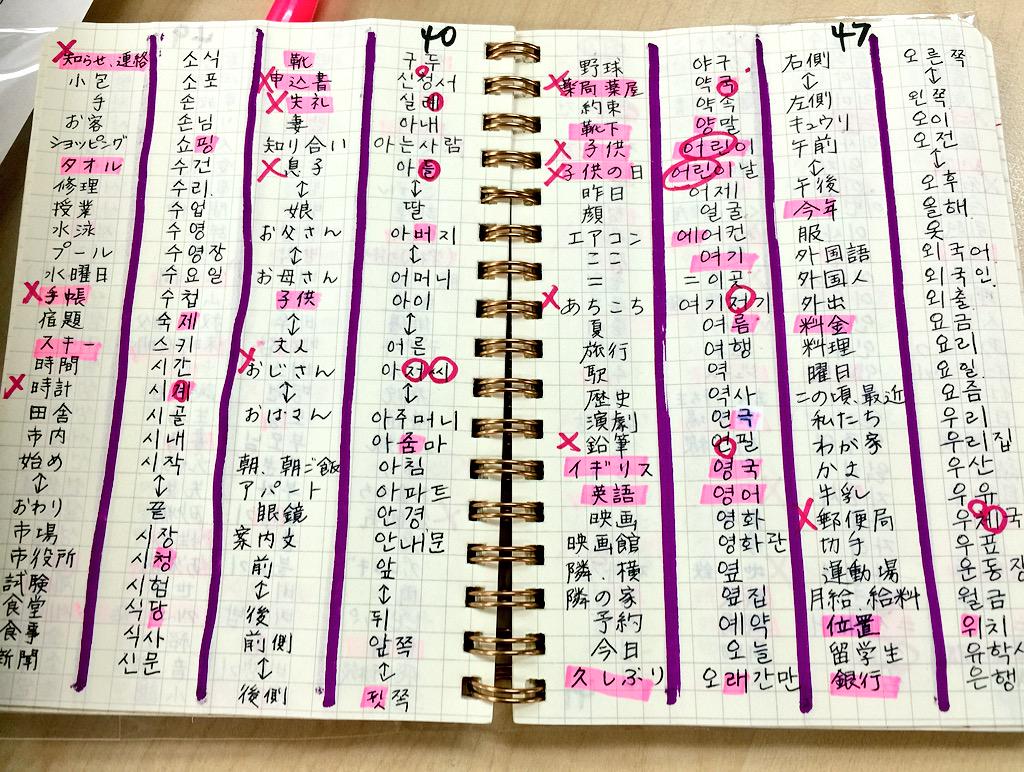 40
知らせ、連絡 소식
小包 소포
手 손
お客 손님
ショッピング 쇼핑
タオル 수건
修理 수리
授業 수업
水泳 수영
プール 수영장
水曜日 수요일
手帳 수첩
宿題 숙제
スキー 스키
時間 시간
時計 시계
田舎 시골
市内 시내
始め 시작
↕ ↕
おわり 끝
市場 시장
市役所 시청
試験 시험
食堂 식당
食事 식사
新聞 신문
靴 구두
申込書 신청서
失礼 실례
妻 아내
知り合い 아는사람
息子 아들
↕ ↕
娘 딸
お父さん 아버지
↕ ↕
お母さん 어머니
子供 아이
↕ ↕
大人 어른
おじさん 아저씨
↕ ↕
おばさん 아주머니
아줌마
朝、朝ご飯 아침
アパート 아파트
眼鏡 안경
案内文 안내문
前 앞
↕ ↕
後 뒤
前側 앞쪽
↕ ↕
後側 뒷쪽
47
野球 야구
薬局 薬屋 약국
約束 약속
靴下 양말
子供 어린이
子供の日 어린이날
昨日 어제
顔 얼굴
エアコン 에어컨
ここ 여기
= =이곳
あちこち 여기저기
夏 여름
旅行 여행
駅 역
歴史 역사
演劇 연극
鉛筆 연필
イギリス 영국
英語 영어
映画 영화
映画館 영화관
隣、横 옆
隣の家 옆집
予約 예약
今日 오늘
久しぶり 오래간만
右側 오른쪽
↕ ↕
左側 왼쪽
キュウリ 오이
午前 오전
↕ ↕
午後 오후
今年 올해
服 옷
外国語 외국어
外国人 외국인
外出 외출
料金 요금
料理 요리
曜日 요일
この頃、最近 요즘
私たち 우리
わが家 우리집
かさ 우산
牛乳 우유
郵便局 우체국
切手 우표
運動場 운동장
月給、給料 월급
位置 위치
留学生 유학
銀行 은행